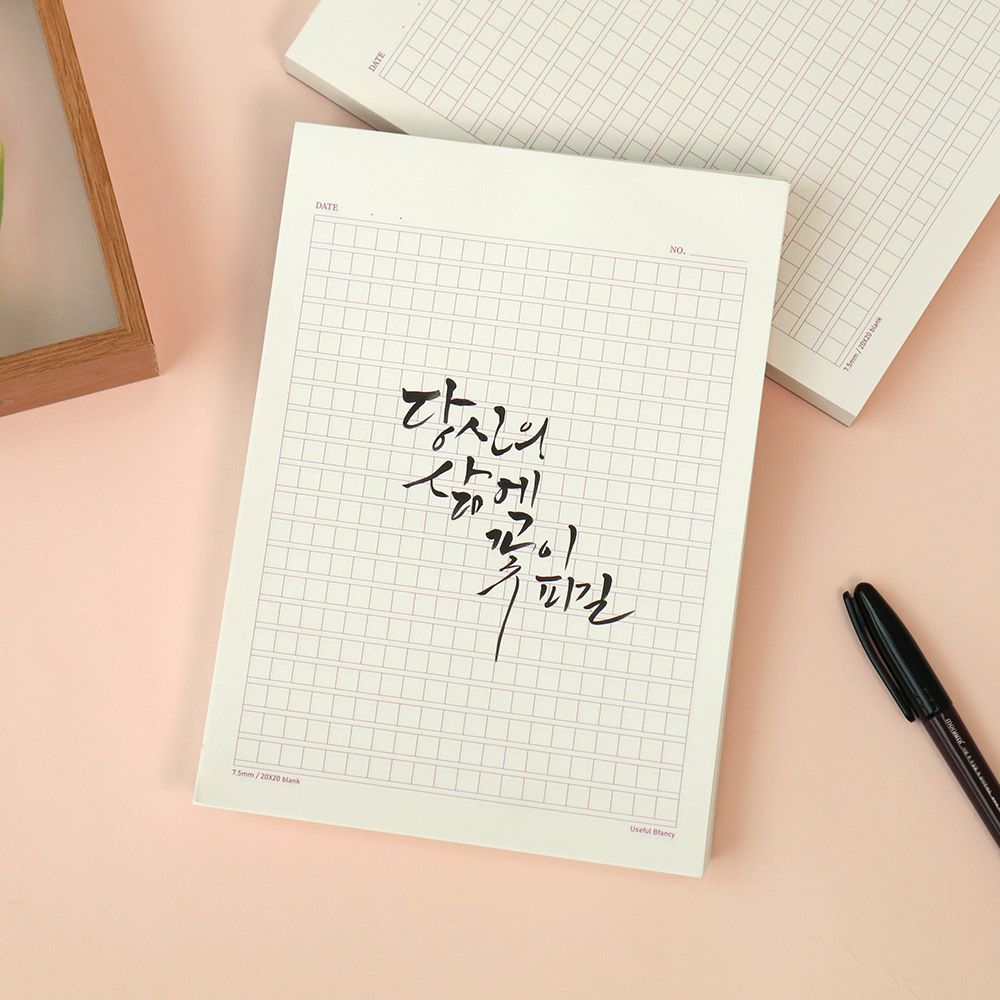 DATE
DATE
NO.
당신의
삶에
꽃이
피길
7.5mm / 20X20 blank
7.5mm / 20X20 blank
Useful Bfancy
monami